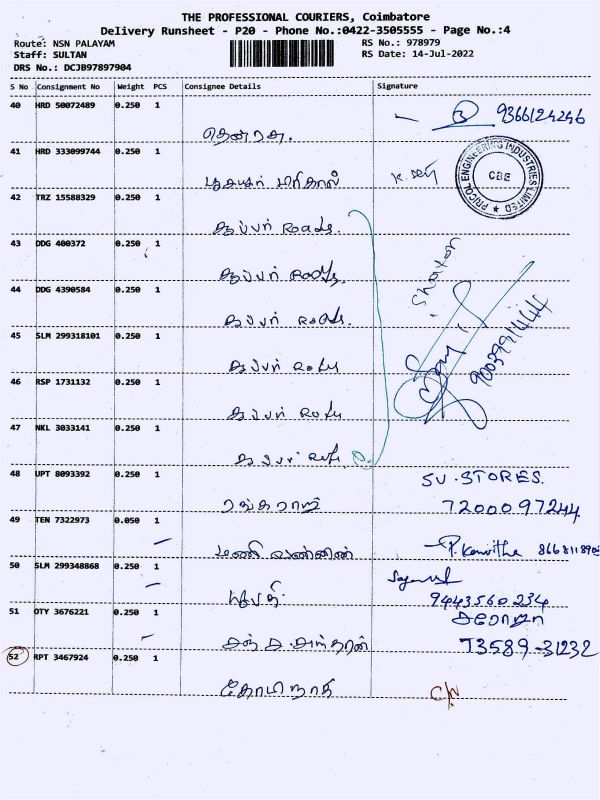 THE PROFESSIONAL COURIERS, Coimbatore
Delivery Runsheet - P20 - Phone No.:0422-3505555 - Page No.:4
Route: NSN PALAYAM RS No.: 978979
Staff: SULTAN RS Date: 14-Jul-2022
DRS No.: DCJB97897904
S No Consignment No Weight PCS Consignee Details Signature
40 HRD 50072489 0.250 1 9366124246
41 HRD 333099744 0.250 1
PRICOL ENGINEERING INDUSTRIES LIMITED CBE
42 TRZ 15588329 0.250 1
சுப்பர் Roads.
43 DDG 400372 0.250 1
சுப்பர் Roads.
44 DDG 4390584 0.250 1
சுப்பர் Roads.
9003991444
45 SLM 299318101 0.250 1
46 RSP 1731132 0.250 1
47 NKL 3033141 0.250 1
48 UPT 8093392 0.250 1 SU.STORES.
ரங்கராஜ் 7200097244
49 TEN 7322973 0.050 1
மணி வண்ணன் P. Kavitha 8668118905
50 SLM 299348868 0.250 1
9443560234
51 OTY 3676221 0.250 1 சரோஜா
73589-31232
52 RPT 3467924 0.250 1
கோபிநாத் C/N